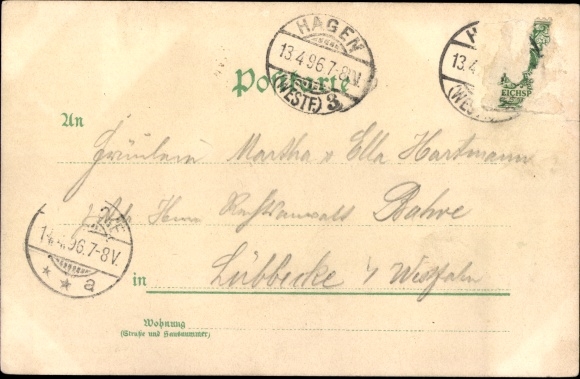 HAGEN
13.4.96.7-8V.
(WESTF) 3
H
13.4
(WEST
EICHSP
Postkarte
An
Fräulein Martha u Ella Hartmann
Herrn Rechtsanwalt Bahre
14.4.96.7-8V.
* * a
in Lübbecke i/ Westfalen
Wohnung
(Straße und Hausnummer)